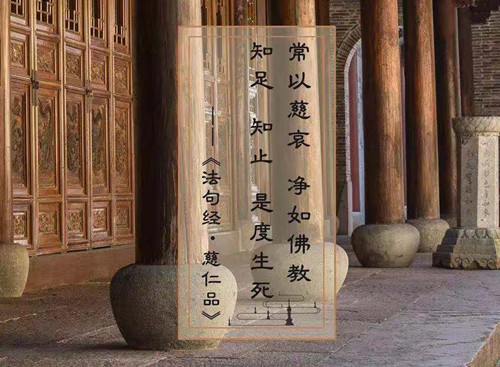 常以慈哀 净如佛教
知足 知止 是度生死
——《法句经·慈仁品》